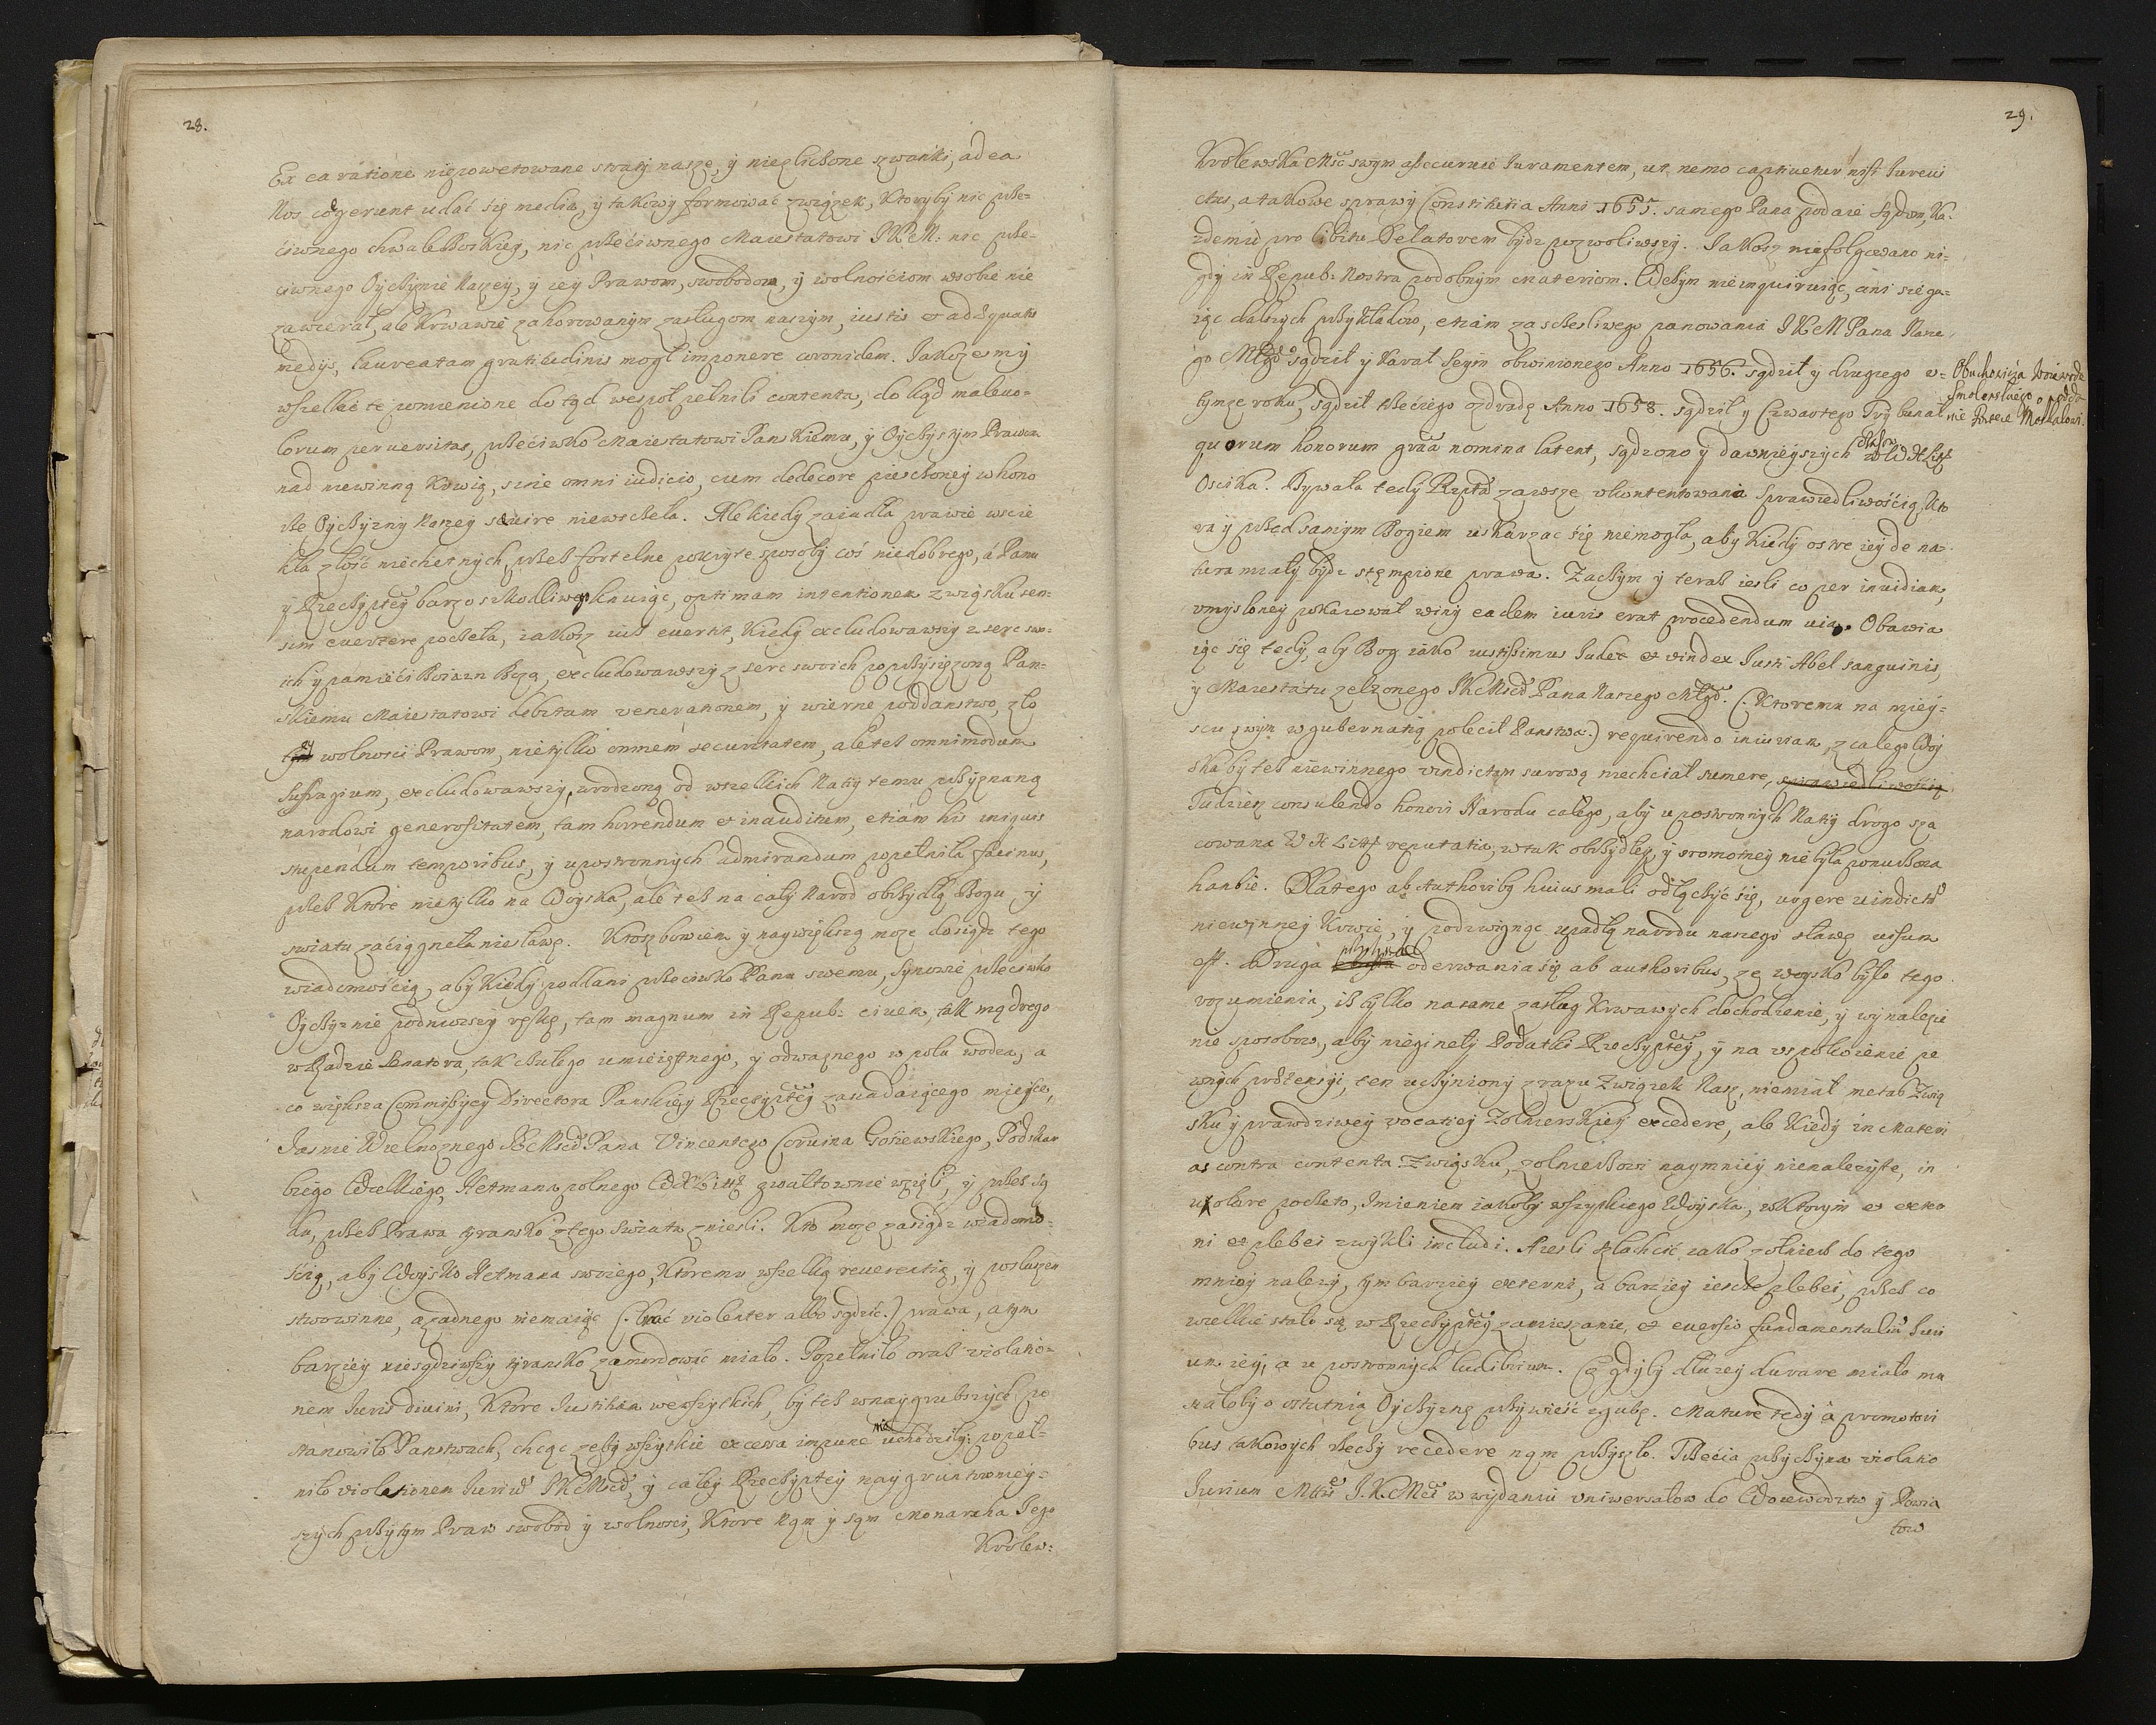 28.
Ex ea ratione niepowetowane straty nasze, y niezliczone szwanki, ad ea
Nos coegerunt udać się media, y takowy formować związek, ktoryby nic prze-
ciwnego chwale Boskiey, nic przeciwnego Maiestatowi J K M: nic prze-
ciwnego Oyczyznie naszey, y iey Prawom, swobodom, y wolnościom wsobie nie
zawierał, ale krwawie zahorowanym zasługom naszym, iustis et adæquatis
medys, laureatam gratitudinis mogł imponere coronidem. Jakoż y my
wszelkie te pomienione do tąd wespoł pełnili contenta, do kąd malevo-
lorum perversitas, przeciwko Maiestatowi Panskiemu, y Oyczystym Prawom
nad niewinną krwią, sine omni iudicio, cum dedecore pieszczoney whono
rze Oyczyzny naszey sævire niewszczeła. Ale kiedy zaiadła prawie wscie
kła złość niechętnych, przez fortelne pokryte sposoby coś niedobrego, á Panu
y Rzeczyptey barzo szkodliwego knuiąc, optimam intentionem związku sen-
sim evertere poczeła, iakosz iuż evertit, kiedy excludowawszy z serc swo-
ich y pamięci Boiazn Bożą, excludowawszy z serc swoich poprzysiężoną Pan-
skiemu Maiestatowi debitam venerationem, y wierne poddanstwo, zło
tey wolnosci Prawom, nietylko omnem securitatem, ale też omnimodum
suffragium, excludowawszy, wrodzoną od wszelkich Natiy temu przyznaną
narodowi generositatem, tam horrendum et inauditum, etiam his iniquis
stupendum temporibus, y upostronnych admirandum popełniła facinus,
przez ktore nietylko na Woyska, ale też na cały Narod obrzydłą Bogu y
swiatu zaciągneła niesławę. Ktosz bowiem y naywiększą może dosiądz tego
wiadomością, aby kiedy poddani przeciwko Panu swemu, Synowie przeciwko
Oyczyznie podniozszy rękę, tam magnum in Repub: civem, tak mądrego
w Radzie Senatora, tak czułego umieiętnego, y odważnego w polu wodza, a
co większa Commissyey Directora Panskiey y Rzeczyptey zasiadaiącego mieysce,
Jasnie Wielmoznego Je Mscd Pana Vincentego Corvina Gosiewskiego, Podskar
biego Wielkiego, Hetmana polnego W X Litt gwałtownie wzięli, y przez są
du, przez Prawa tyransko z tego swiata zniesli. Kto może zasiądz wiadomo-
ścią, aby Woysko Hetmana swoiego, ktoremu wszelką reverentią, y posłuszen
stwo winne, a żadnego niemaiąc (. brać violenter albo sądzić.) prawa, a tym
barziey niesądziwszy tyransko zamordować miało. Popełniło oraz violatio-
nem Juris divini, ktore Justitiam wewszytkich, by też w naygrubszych po
stanowiło Panstwach, chcąc żeby wszytkie excessa impune nie uchodziły: popeł-
niło violationem Jurium J K Mscd, y całey Rzeczyptey naygruntowniey-
szych przytym Praw swobod y wolnosci, ktore Nąm y sąm Monarcha Jego
Krolew:
29.
Krolewska Msc swym assecuruie Juramentem, ut nemo captivetur nisi Jurevi
ctus, a takowe sprawy Constitutia Anni 1655. samego Pana podaie Sądom, ka-
zdemu pro libitu Delatorem bydz pozwoliwszy. Jakosz niefolgowano ni-
gdy in Repub: nostra podobnym materiom. Wczym nieinquiruiąc, ani sięga-
iąc dalszych przykładow, etiam za szczesliwego panowania J K M Pana Nasze
go Młgo sądził y karał Seym obwinionego Anno 1656. sądził y drugiego w-
tymze roku, sądził trzeciego ozdradę Anno 1658. sądził y Czwartego Trybunał
Obuchowicza Woiewodę
Smolenskiego o podda-
nie Fortece Moskalowi.
quorum honorum gratia nomina latent, sądzono y dawnieyszych w W X Litt
Oscika. Bywała tedy Rzpta zawsze ukontentowania Sprawiedliwością, kto
ra y przed samym Bogiem uskarzac się niemogła, aby kiedy ostre iey de na-
tura miały bydz stępione prawa. Zaczym y teraz iesli co per invidiam,
vmysloney pokazował winy eadem iuris erat procedendum via. Obawia
iąc się tedy, aby Bog iako iustissimus Judex et vindex Justi Abel sanguinis,
y Maiestatu zelzonego J K Mscd Pana Naszego Młgd. (. ktoremu na miey-
scu swym w gubernatią polecił Panstwa.) requirendo iniuriam, z całego Woy
ska by też niewinnego vindictam surową niechciał sumere, sprawiedliwością
Tudziesz consulendo honori Narodu całego, aby u postronnych Natiy drogo sza
cowana W X Litt reputatia, wtak obrzydłey y sromotney nie była ponurzona
hanbie. Dlatego ab Authoribq huius mali odłączyć się, urgere vindictā
niewinney krwie, y podzwignąc upadłą narodu naszego sławę visum
est. Druga przyczyna oderwania się ab authoribus, że woysko było tego
rozumienia, iż tylko na same zasług krwawych dochodzenie, y wynalezie
nie sposobow, aby nieginely Podatki Rzeczyptey, y na uspokoienie pe
wnych prætensyi, ten uczyniony zrazu Związek Nasz, niemiał metas Zwią
sku y prawdziwey vocatiey Zołnierskiey excedere, ale kiedy in Materi
as contra contenta Związku, zołnierzowi naymniey nienalezyte, in
volare poczeto, Imieniem iakoby wszytkiego Woyska, w ktorym et exter
ni et plebei zwykli includi. A iesli szlachcic iako zołnierz do tego
mniey nalezy, tym barziey externi, a barziey ieszcze plebei, przez co
wielkie stało się w Rzeczyptey zamieszanie, et eversio fundamentaliū Juri
um iey, a u postronnych ludibrium. Co gdyby dłuzey durare miało mu
siałoby o ostatnią Oyczyznę przywieść zgubę. Mature tedy á promotori
bus takowych rzeczy recedere nąm przyszło. Trzecia przyczyna violatio
Jurium Mttis J. K. Mci w wydaniu vniwersałow do Woiewodztw y Powia
tow